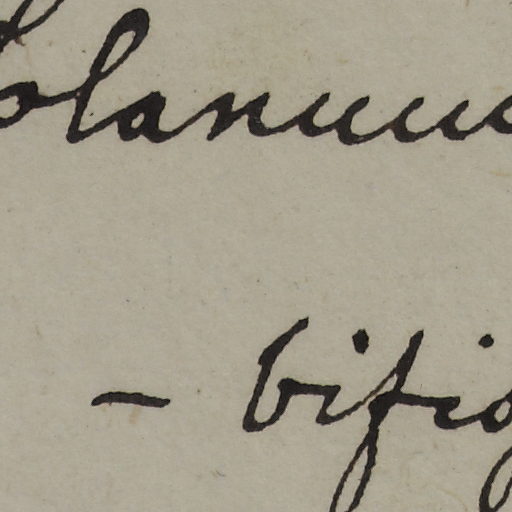 olanum
- bifid